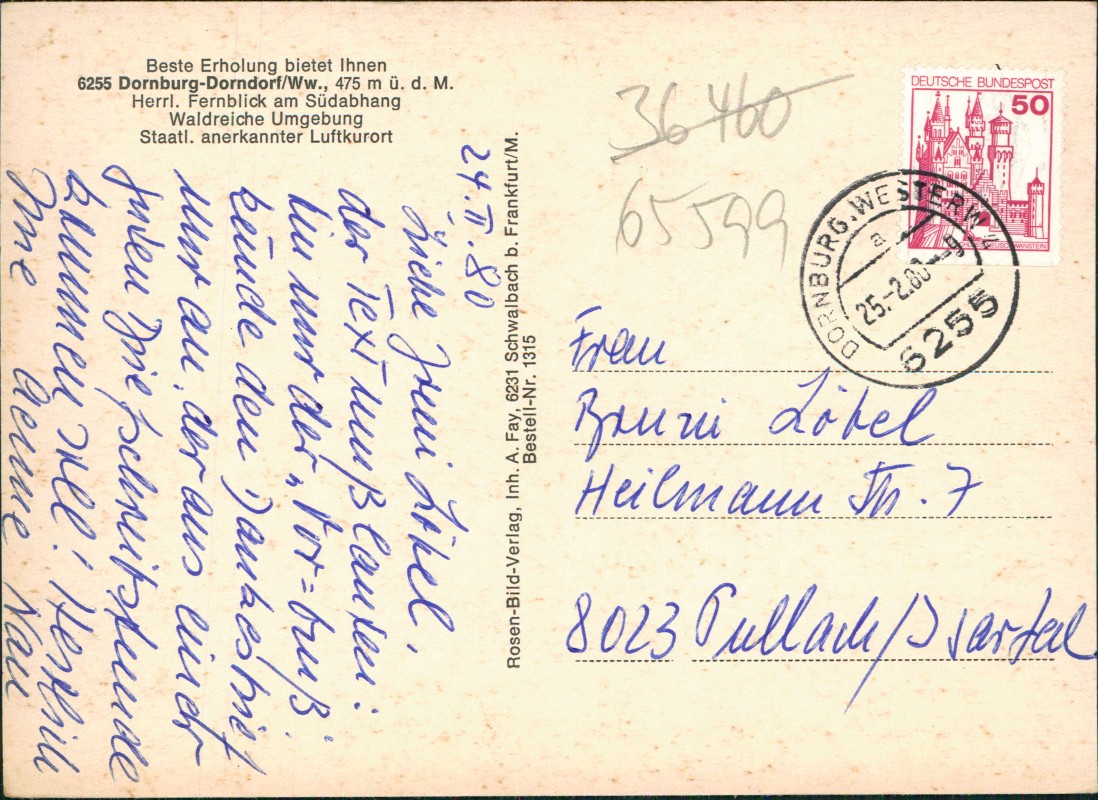 Beste Erholung bietet Ihnen
6255 Dornburg-Dorndorf/Ww., 475 m ü. d. M.
Herrl. Fernblick am Südabhang
Waldreiche Umgebung
Staatl. anerkannter Luftkurort
24. II. 80
Liebe Frau Löbel,
der Text muß lauten:
bin nur der "Vor=
den Dankesbrief
nur an, der aus einer
guten Briefschreibstunde
kommen soll! Herzlich
Ihre
Rosen-Bild-Verlag, Inh. A. Fay, 6231 Schwalbach b. Frankfurt/M.
Bestell-Nr. 1315
36460
65599
DEUTSCHE BUNDESPOST
50
NEUSCHWANSTEIN
DORNBURG, WESTERW
a
25.-2.80--9
6255
Frau
Bruni Löbel
Heilmann Str. 7
8023 Pullach/Isartal